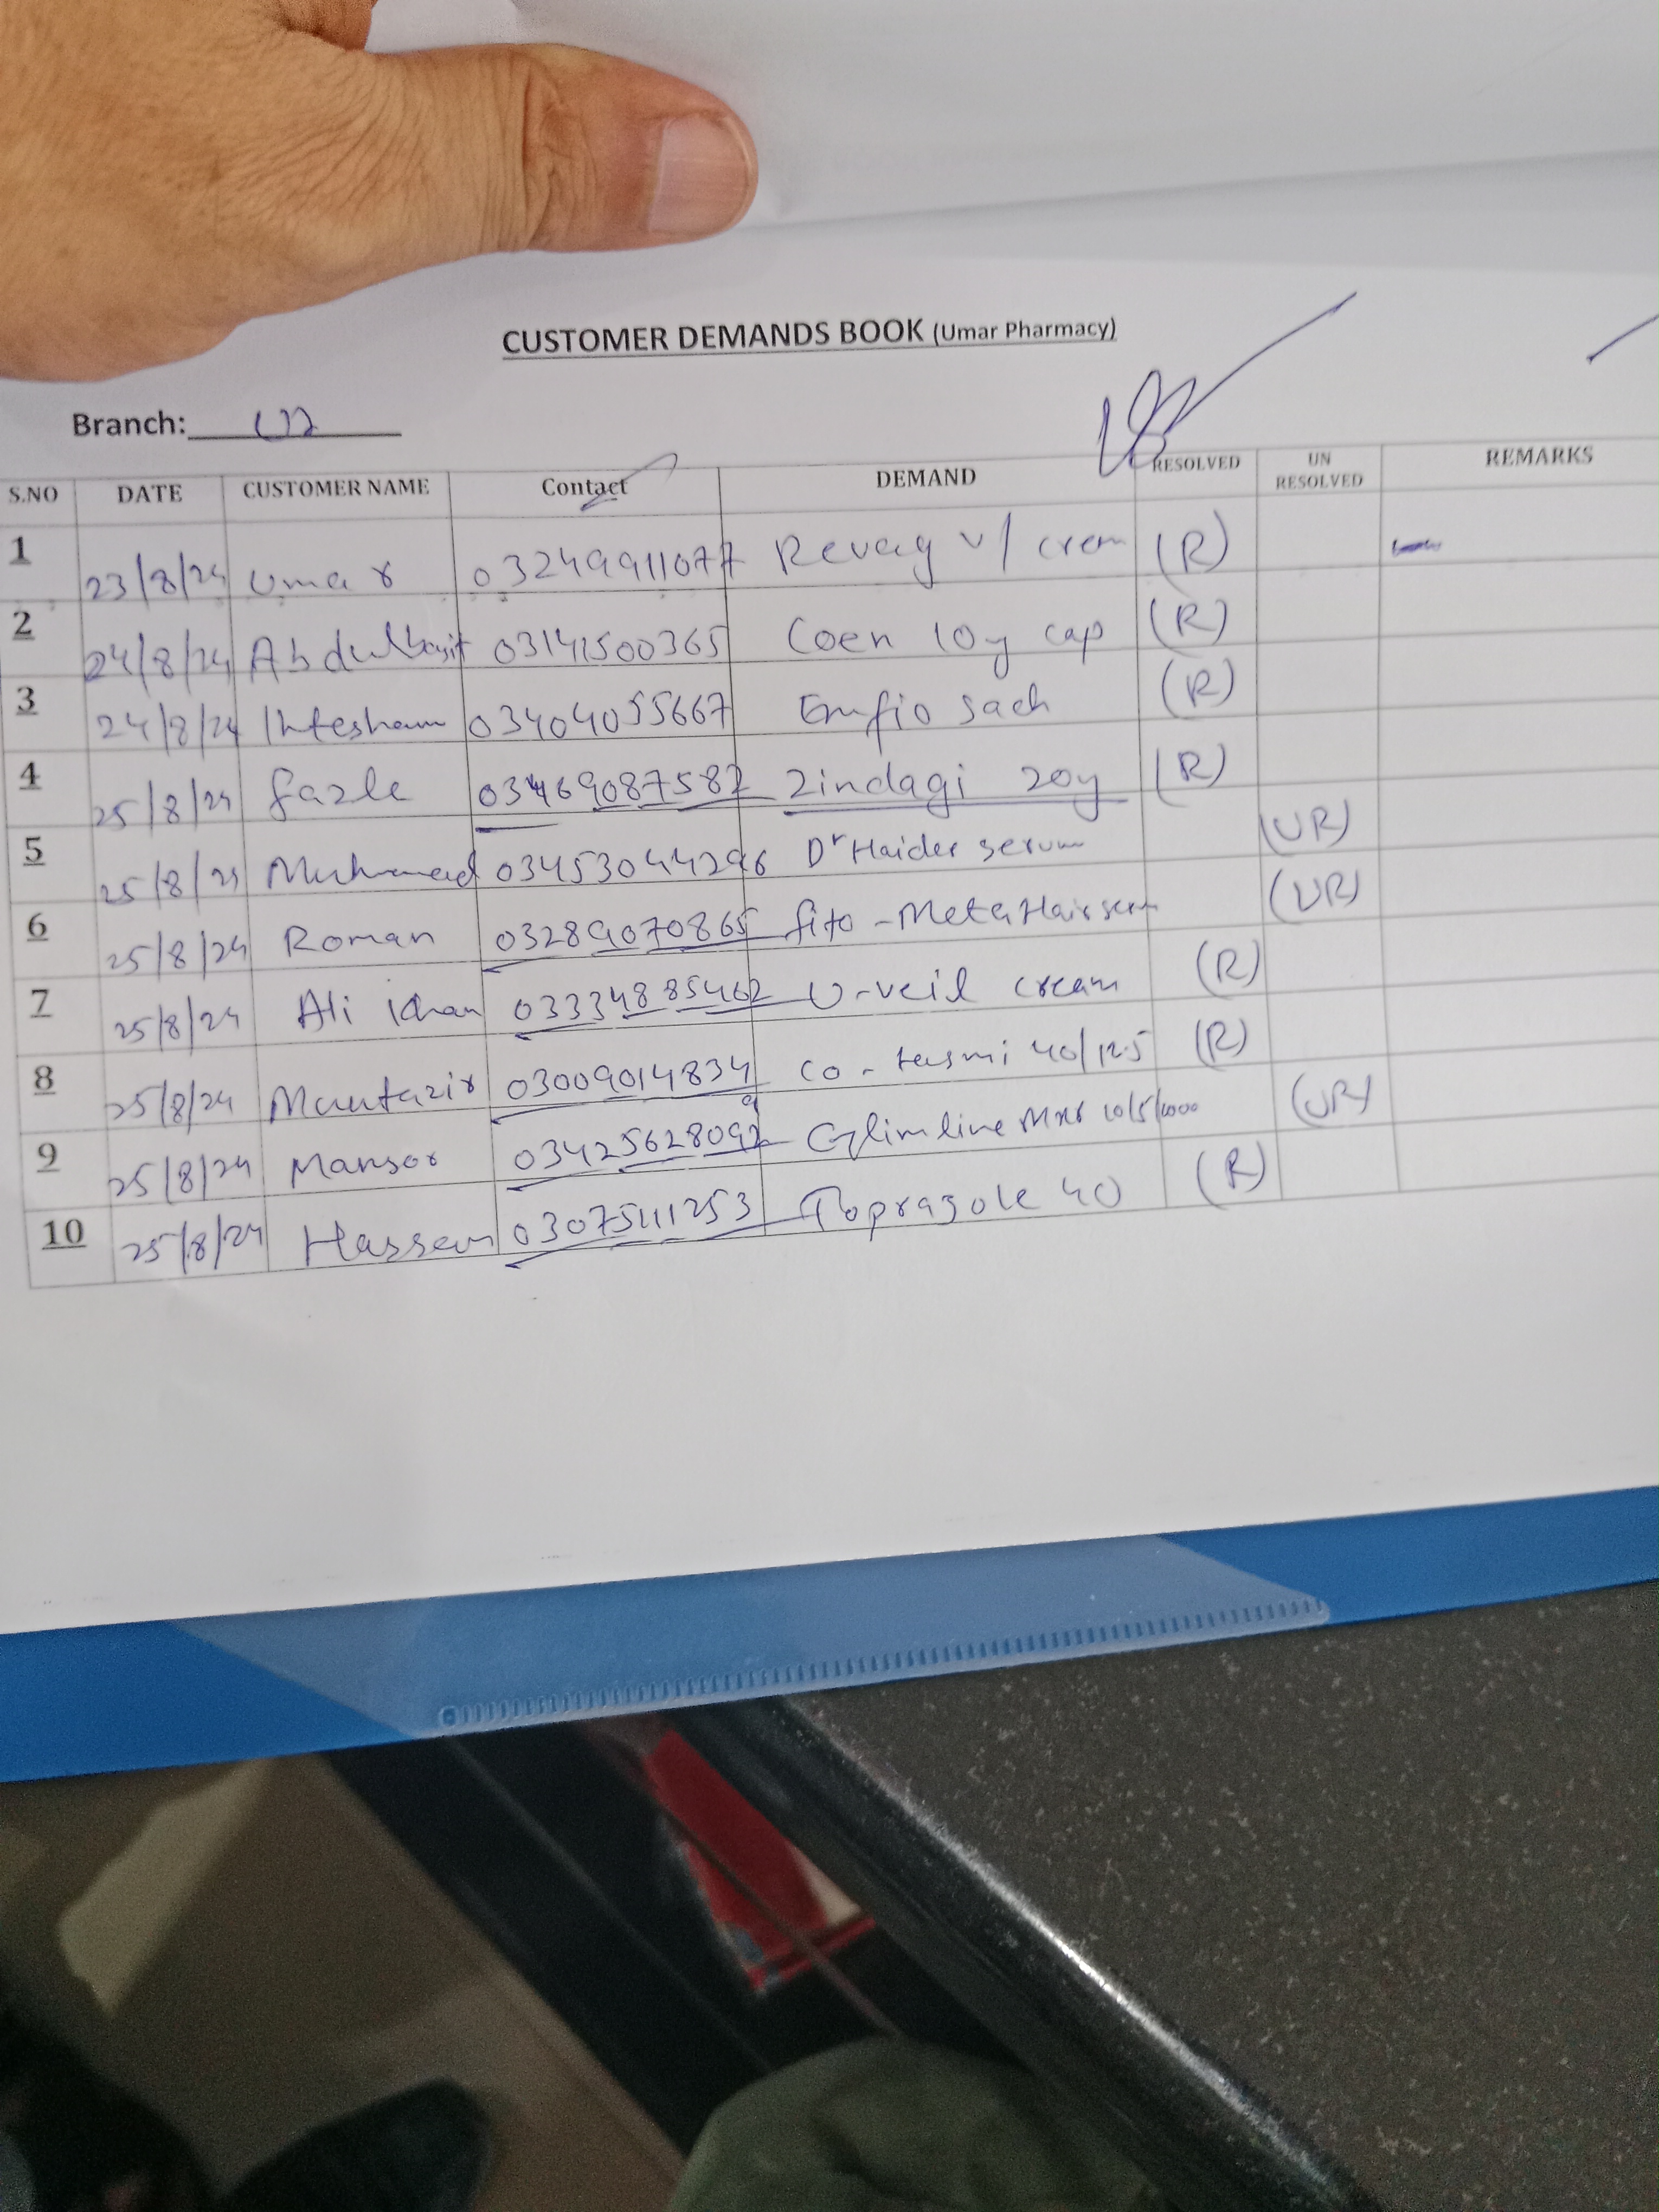 CUSTOMER DEMANDS BOOK (Umar Pharmacy)
Branch:
S.NO DATE CUSTOMER NAME Contact DEMAND RESOLVED UN RESOLVED REMARKS
1 23/8/24 Umar 03249911077 Revag v/ crem (R)
2 24/8/24 Abdulbasit 03141500365 Coen 10y cap (R)
3 24/8/24 Ihtesham 03404055667 Emfio sach (R)
4 25/8/24 fazle 03469087582 Zindagi 20y (R)
5 25/8/24 Muhamad 03453044296 Dr Haider serum (UR)
6 25/8/24 Roman 03289070865 fito-Meta Hair serm (UR)
7 25/8/24 Ali Khan 03334885462 U-veil cream (R)
8 25/8/24 Mauntazir 03009014834 Co-tasmi 40/12.5 (R)
9 25/8/24 Mansor 0342562809 Glimline Mxr 10/5/1000 (UR)
10 25/8/24 Hassan 03075411253 Toprazole 40 (R)